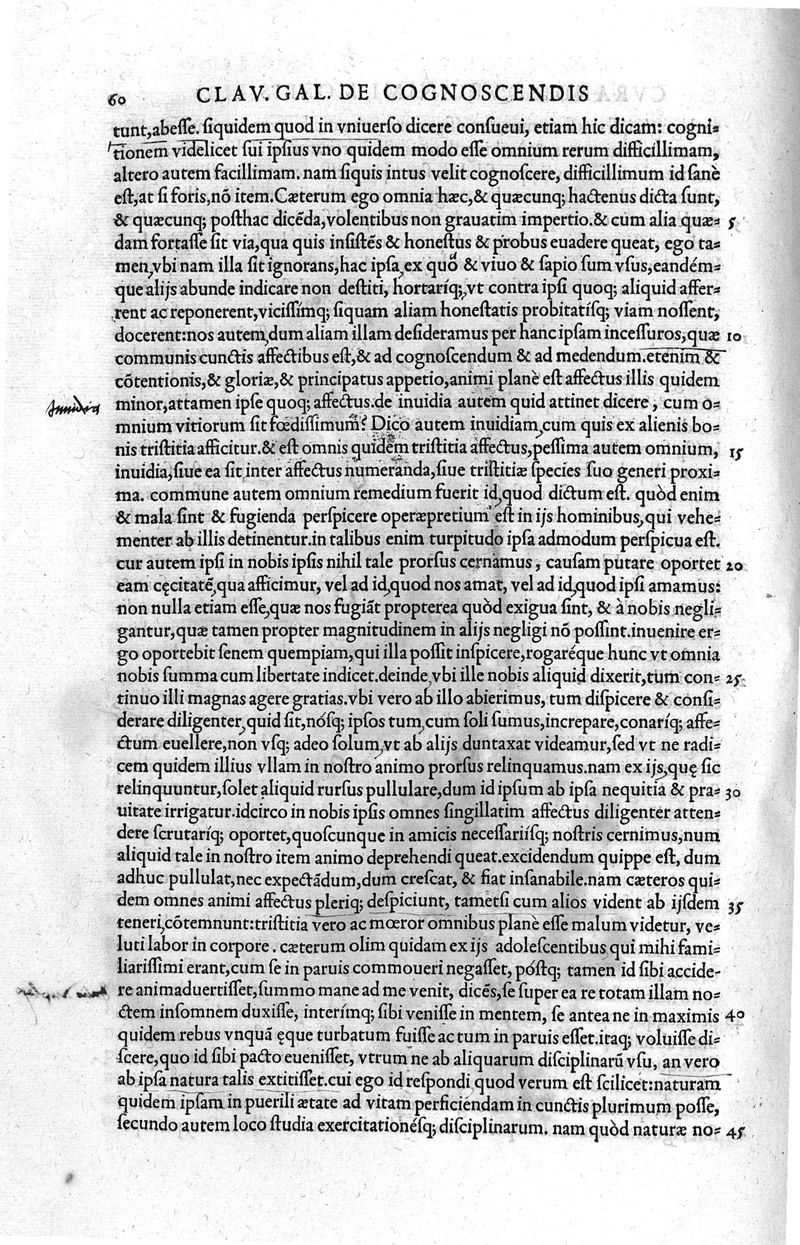 60 CLAV. GAL. DE COGNOSCENDIS
tunt,abeſſe. ſiquidem quod in vniuerſo dicere conſueui, etiam hic dicam: cogni⸗
tionem videlicet ſui ipſius vno quidem modo eſſe omnium rerum difficillimam,
altero autem facillimam. nam ſiquis intus velit cognoſcere, difficillimum id ſanè
eſt,at ſi foris,nō item.Cæterum ego omnia hæc,& quæcunq; hactenus dicta ſunt,
& quæcunq; poſthac dicēda,volentibus non grauatim impertio.& cum alia quæ⸗ 5
dam fortaſſe ſit via,qua quis inſiſtēs & honeſtus & probus euadere queat, ego ta⸗
men,vbi nam illa ſit ignorans,hac ipſa,ex quo & viuo & ſapio ſum vſus,eandém⸗
que alijs abunde indicare non deſtiti, hortaríq;,vt contra ipſi quoq; aliquid affer⸗
rent ac reponerent,viciſſímq; ſiquam aliam honeſtatis probitatíſq; viam noſſent,
docerent:nos autem,dum aliam illam deſideramus per hanc ipſam inceſſuros,quæ 10
communis cunctis affectibus eſt,& ad cognoſcendum & ad medendum.etenim &
cōtentionis,& gloriæ,& principatus appetio,animi planè eſt affectus illis quidem
minor,attamen ipſe quoq; affectus.de inuidia autem quid attinet dicere, cum o⸗
mnium vitiorum ſit fœdiſſimum? Dico autem inuidiam,cum quis ex alienis bo⸗
nis triſtitia afficitur.& eſt omnis quidem triſtitia affectus,peſſima autem omnium, 15
inuidia,ſiue ea ſit inter affectus numeranda,ſiue triſtitiæ ſpecies ſuo generi proxi⸗
ma. commune autem omnium remedium fuerit id,quod dictum eſt. quòd enim
& mala ſint & fugienda perſpicere operæpretium eſt in ijs hominibus,qui vehe⸗
menter ab illis detinentur.in talibus enim turpitudo ipſa admodum perſpicua eſt.
cur autem ipſi in nobis ipſis nihil tale prorſus cernamus, cauſam putare oportet 20
eam cęcitatē,qua afficimur, vel ad id,quod nos amat, vel ad id,quod ipſi amamus:
non nulla etiam eſſe,quæ nos fugiāt propterea quòd exigua ſint, & à nobis negli⸗
gantur,quæ tamen propter magnitudinem in alijs negligi nō poſſint.inuenire er⸗
go oportebit ſenem quempiam,qui illa poſſit inſpicere,rogaréque hunc vt omnia
nobis ſumma cum libertate indicet.deinde,vbi ille nobis aliquid dixerit,tum con⸗ 25
tinuo illi magnas agere gratias.vbi vero ab illo abierimus, tum diſpicere & conſi⸗
derare diligenter,quid ſit,nóſq; ipſos tum,cum ſoli ſumus,increpare,conaríq; affe⸗
ctum euellere,non vſq; adeo ſolum,vt ab alijs duntaxat videamur,ſed vt ne radi⸗
cem quidem illius vllam in noſtro animo prorſus relinquamus.nam ex ijs,quę ſic
relinquuntur,ſolet aliquid rurſus pullulare,dum id ipſum ab ipſa nequitia & pra⸗ 30
uitate irrigatur.idcirco in nobis ipſis omnes ſingillatim affectus diligenter atten⸗
dere ſcrutaríq; oportet,quoſcunque in amicis neceſſariíſq; noſtris cernimus,num
aliquid tale in noſtro item animo deprehendi queat.excidendum quippe eſt, dum
adhuc pullulat,nec expectādum,dum creſcat, & fiat inſanabile.nam cæteros qui⸗
dem omnes animi affectus pleriq; deſpiciunt, tametſi cum alios vident ab ijſdem 35
teneri,cōtemnunt:triſtitia vero ac mœror omnibus planè eſſe malum videtur, ve⸗
luti labor in corpore. cæterum olim quidam ex ijs adoleſcentibus qui mihi fami⸗
liariſſimi erant,cum ſe in paruis commoueri negaſſet, póſtq; tamen id ſibi accide⸗
re animaduertiſſet,ſummo mane ad me venit, dicēs,ſe ſuper ea re totam illam no⸗
ctem inſomnem duxiſſe, interímq; ſibi veniſſe in mentem, ſe antea ne in maximis 40
quidem rebus vnquā ęque turbatum fuiſſe ac tum in paruis eſſet.itaq; voluiſſe di⸗
ſcere,quo id ſibi pacto eueniſſet, vtrum ne ab aliquarum diſciplinarū vſu, an vero
ab ipſa natura talis extitiſſet.cui ego id reſpondi quod verum eſt ſcilicet:naturam
quidem ipſam in puerili ætate ad vitam perficiendam in cunctis plurimum poſſe,
ſecundo autem loco ſtudia exercitationéſq; diſciplinarum. nam quòd naturæ no⸗ 45